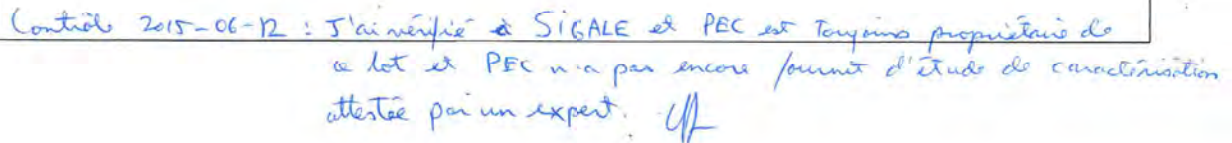 Contrôle 2015-06-12 : J'ai vérifié à SIGALE et PEC est toujours propriétaire de
ce lot et PEC n'a pas encore fournit d'étude de caractérisation
attestée par un expert.